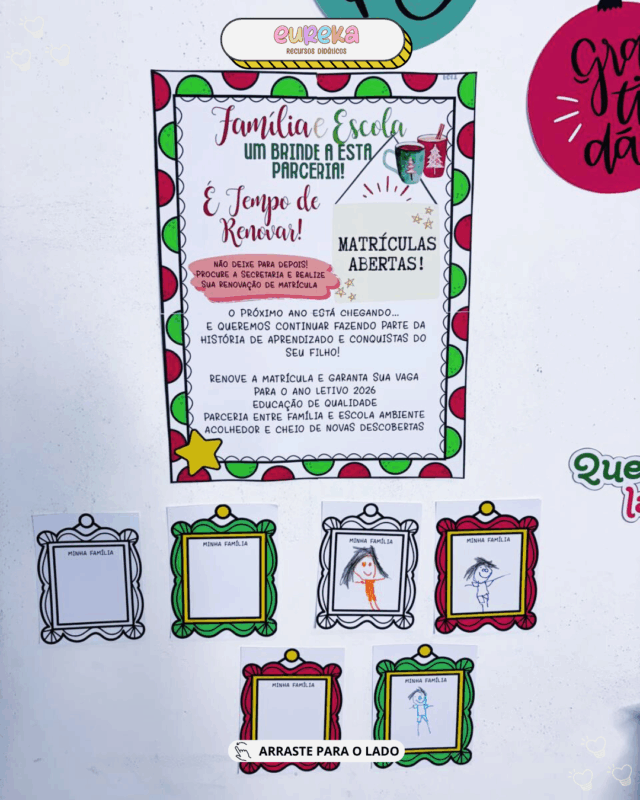 eupeka
RECURSOS DIDÁTICOS
Gra
ti
dá
Família e Escola
UM BRINDE A ESTA
PARCERIA!
É Tempo de
Renovar!
MATRÍCULAS
ABERTAS!
NÃO DEIXE PARA DEPOIS!
PROCURE A SECRETARIA E REALIZE
SUA RENOVAÇÃO DE MATRÍCULA
O PRÓXIMO ANO ESTÁ CHEGANDO...
E QUEREMOS CONTINUAR FAZENDO PARTE DA
HISTÓRIA DE APRENDIZADO E CONQUISTAS DO
SEU FILHO!
RENOVE A MATRÍCULA E GARANTA SUA VAGA
PARA O ANO LETIVO 2026
EDUCAÇÃO DE QUALIDADE
PARCERIA ENTRE FAMÍLIA E ESCOLA AMBIENTE
ACOLHEDOR E CHEIO DE NOVAS DESCOBERTAS
Que
MINHA FAMÍLIA
MINHA FAMÍLIA
MINHA FAMÍLIA
MINHA FAMÍLIA
MINHA FAMÍLIA
MINHA FAMÍLIA
ARRASTE PARA O LADO